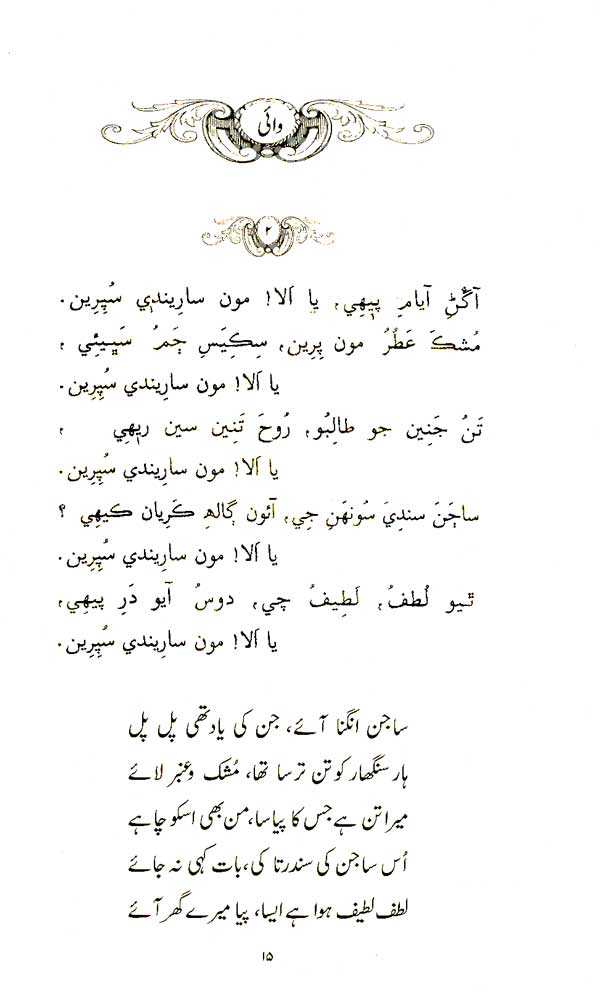 وائي
۲
آڱڻِ آيامِ پيھِي، يا اَلا! مون سارِيندي سُپِرِين.
مُشڪَ عَطُرُ مون پِرِين، سِڪِيَسِ ڄَمُ سَڀيئِي ،
يا اَلا! مون سارِيندي سُپِرِين.
تَنُ جَنِين جو طالِبُو، رُوحَ تَنِين سين ريھِي ،
يا اَلا! مون سارِيندي سُپِرِين.
ساڄَنَ سندِيَ سُونهَنِ جِي، آئون ڳالهِ ڪَرِيان ڪيھِي ؟
يا اَلا! مون سارِيندي سُپِرِين.
ٿيو لُطفُ، لَطِيفُ چي، دوسُ آيو دَرِ پيھِي،
يا اَلا! مون سارِيندي سُپِرِين.
ساجن انگنا آئے، جن کی یاد تھی پل پل
ہار سنگھار کو تن ترسا تھا، مُشک و عنبر لائے
میرا تن ہے جس کا پیاسا، من بھی اسکو چاہے
اُس ساجن کی سندرتا کی، بات کہی نہ جائے
لطف لطیف ہوا ہے ایسا، پیا میرے گھر آئے
۱۵